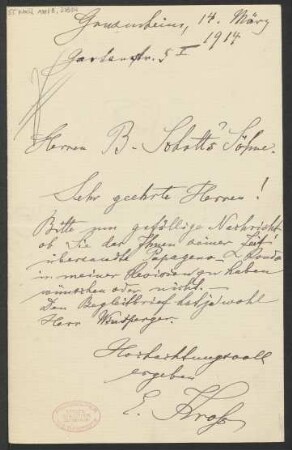 Gonsenheim, 14. März
1914
Gartenstr. 5 I
Herren B. Schott's Söhne.
Sehr geehrte Herren!
Bitte um gefällige Nachricht
ob Sie das Ihnen seiner Zeit
übersandte Papageno- Rondo
in meiner Revision zu haben
wünschen oder nicht.—
Den Begleitbrief hat ja wohl
Herr Windsperger.
Hochachtungsvoll
ergeben
E. Kross